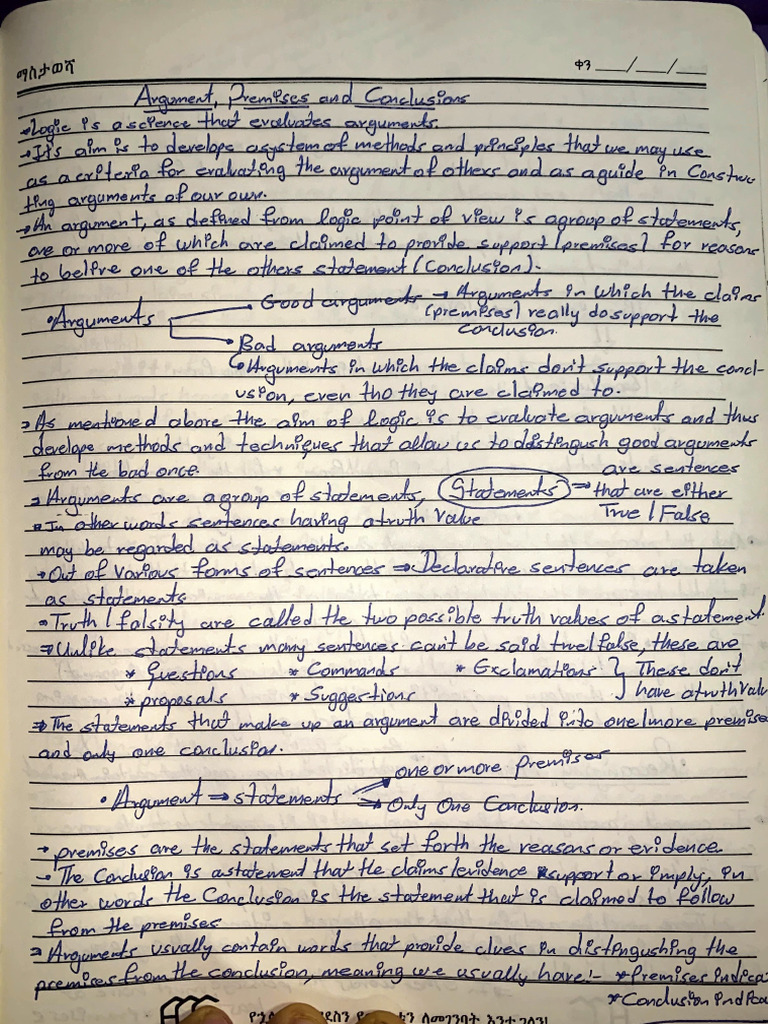 ማስታወሻ
ቀን ___/___/___
Argument, Premises and Conclusions
→ Logic is a science that evaluates arguments.
→ It's aim is to develop a system of methods and principles that we may use
as a criteria for evaluating the argument of others and as a guide in Constru-
ting arguments of our own.
→ An argument, as defined from logic point of view is a group of statements,
one or more of which are claimed to provide support (premises) for reasons
to belive one of the others statement (Conclusion).
• Arguments
Good arguments → Arguments in which the claims
(premises) really do support the
conclusion.
Bad arguments
Arguments in which the claims don't support the concl-
usion, even tho they are claimed to.
→ As mentioned above the aim of logic is to evaluate arguments and thus
develope methods and techniques that allow us to distingush good arguments
from the bad once.
→ Arguments are a group of statements, Statements ⇒ are sentences
that are either
True / False
* In other words sentences having a truth value
may be regarded as statements.
→ Out of various forms of sentences ⇒ Declarative sentences are taken
as statements
→ Truth / falsity are called the two possible truth values of a statement.
⇒ Unlike statements many sentences can't be said true/false, these are
* Questions * Commands * Exclamations } These don't
* proposals * Suggestions have a truth valu
⇒ The statements that make up an argument are divided into one/more premise
and only one conclusion.
• Argument ⇒ statements
one or more premises
⇒ Only One Conclusion.
→ premises are the statements that set forth the reasons or evidence.
→ The Conclusion is a statement that the claims/evidence support or imply, in
other words the Conclusion is the statement that is claimed to follow
from the premises
→ Arguments usually contain words that provide clues in distingushing the
premises from the conclusion, meaning we usually have:- * Premises indica
* Conclusion indica
ለመገንባት እንተጋለን!